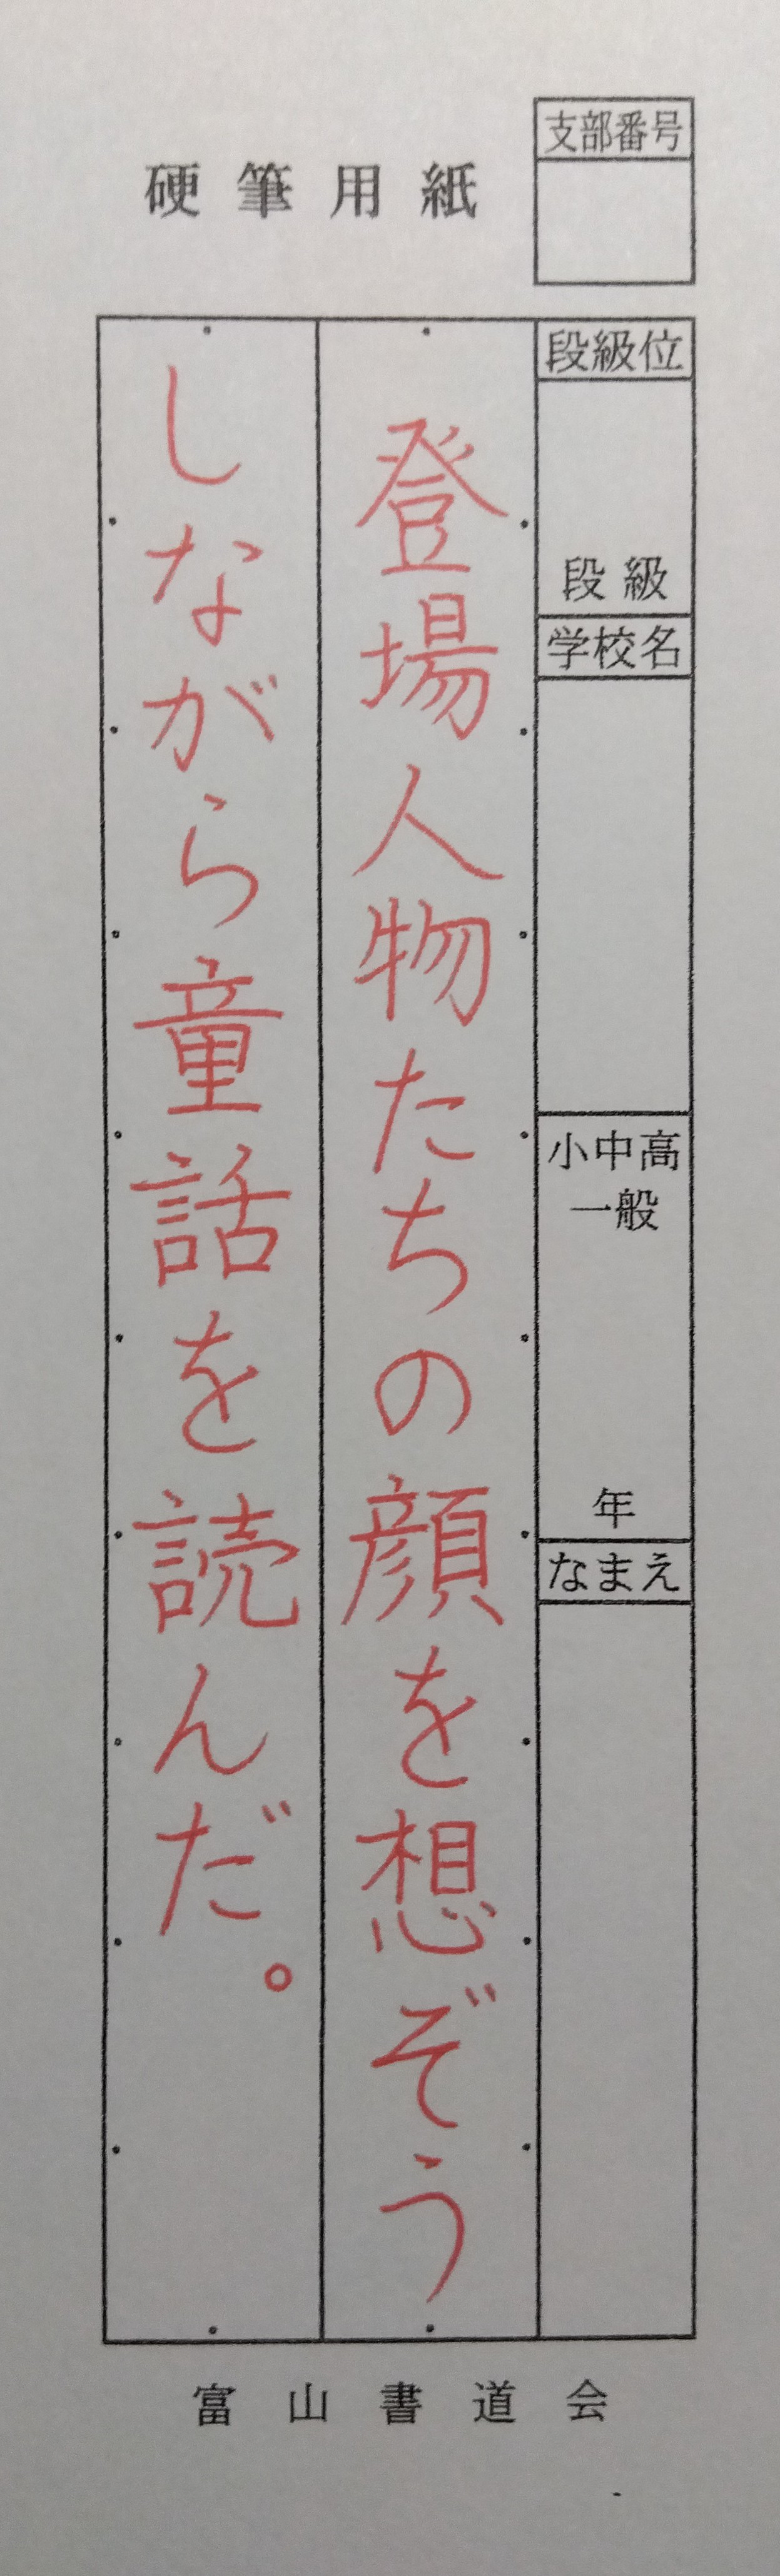 硬筆用紙
支部番号
段級位
段級
学校名
小中高
一般
年
なまえ
登場人物たちの顔を想ぞう
しながら童話を読んだ。
富山書道会